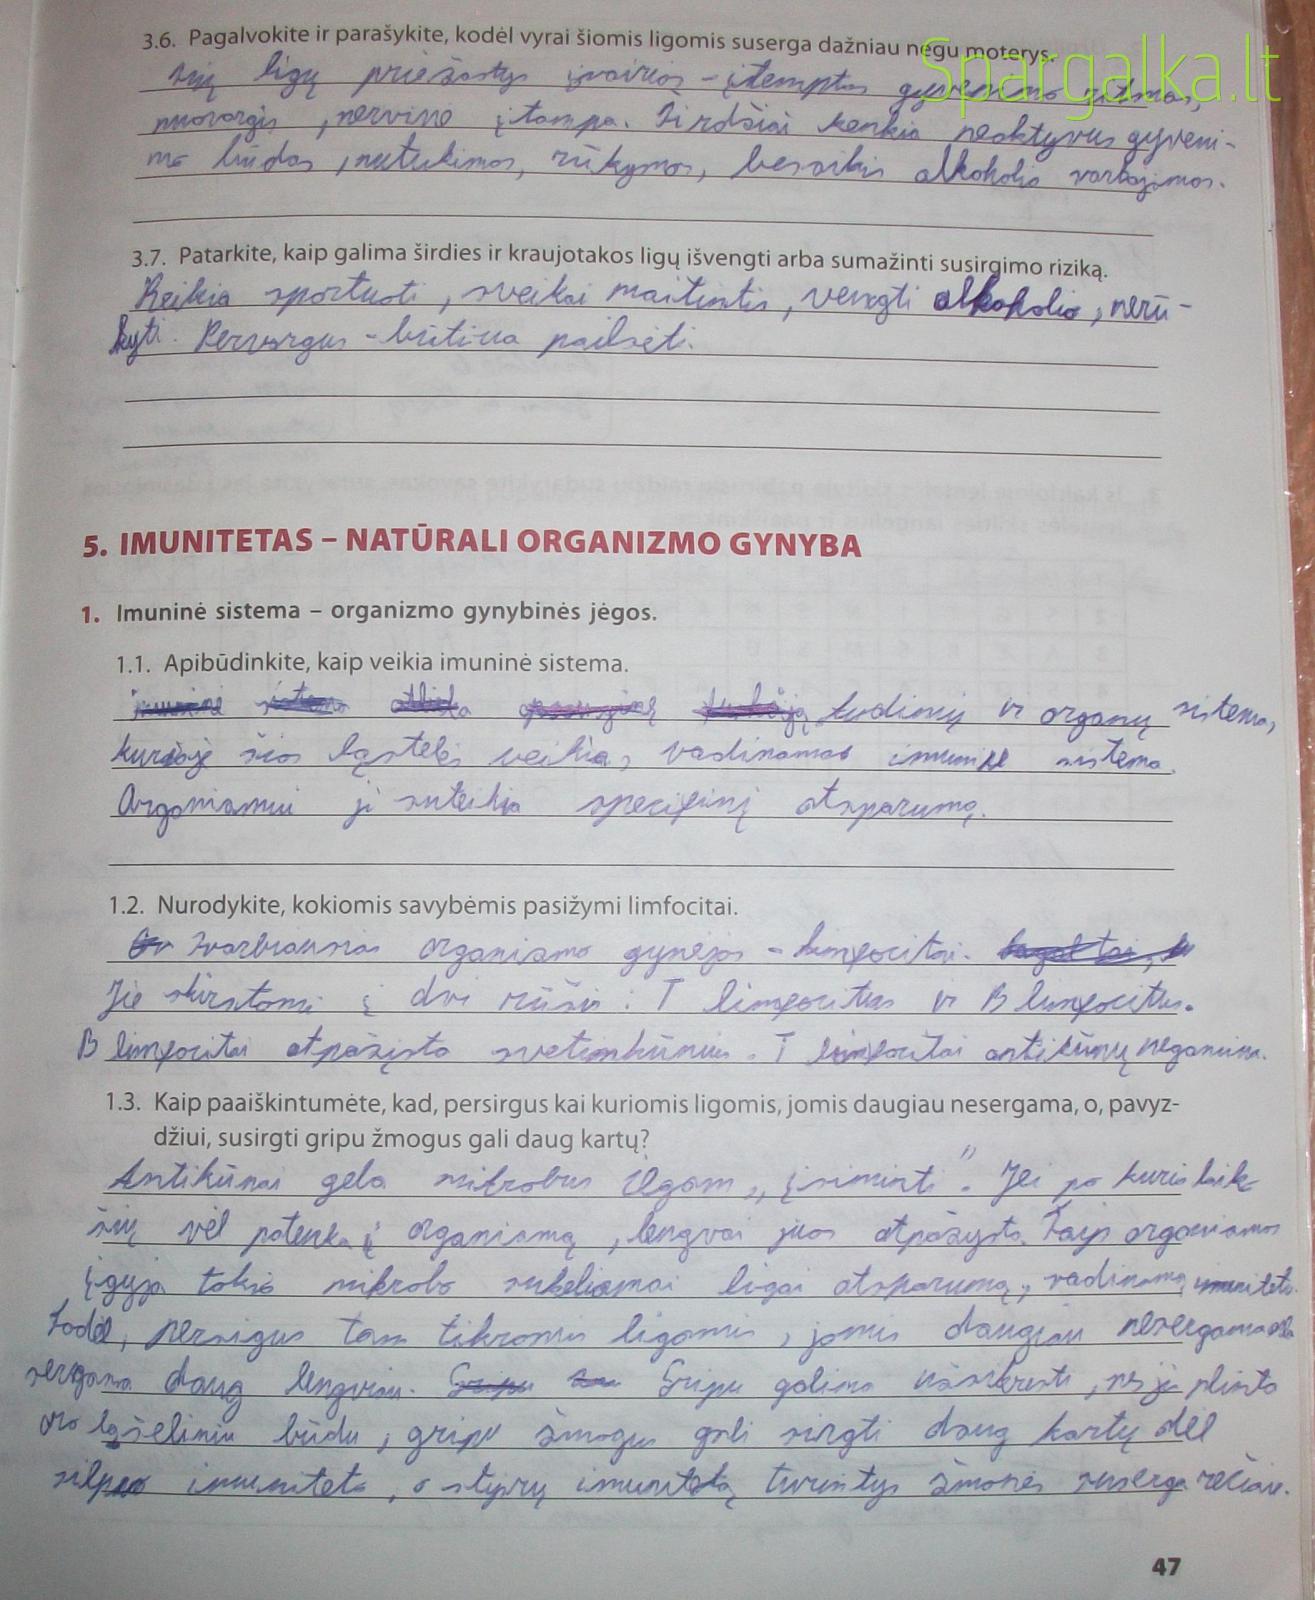 Spargalka.lt
3.6. Pagalvokite ir parašykite, kodėl vyrai šiomis ligomis suserga dažniau negu moterys.
šių ligų priežastys įvairios – įtemptas gyvenimo ritmas,
nuovargis, nervinė įtampa. Širdžiai kenkia neaktyvus gyveni-
mo būdas, nutukimas, rūkymas, besaikis alkoholio vartojimas.
3.7. Patarkite, kaip galima širdies ir kraujotakos ligų išvengti arba sumažinti susirgimo riziką.
Reikia sportuoti, sveikai maitintis, vengti alkoholio, nerū-
kyti. Pervargus – būtina pailsėti.
5. IMUNITETAS – NATŪRALI ORGANIZMO GYNYBA
1. Imuninė sistema – organizmo gynybinės jėgos.
1.1. Apibūdinkite, kaip veikia imuninė sistema.
imuninė sistema atlieka apsauginę funkciją audinių ir organų sistema,
kurioje šios ląstelės veikia, vadinamas imuninė sistema.
Organizmui ji suteikia specifinį atsparumą.
1.2. Nurodykite, kokiomis savybėmis pasižymi limfocitai.
Svarbiausias organizmo gynėjas – limfocitai.
Jie skirstomi į dvi rūšis: T limfocitus ir B limfocitus.
B limfocitai atpažįsta svetimkūnius. T limfocitai antikūnų negamina.
1.3. Kaip paaiškintumėte, kad, persirgus kai kuriomis ligomis, jomis daugiau nesergama, o, pavyz-
džiui, susirgti gripu žmogus gali daug kartų?
Antikūnai geba mikrobus ilgam „įsiminti“. Jei po kurio laik-
šių vėl patenka į organizmą, lengvai juos atpažįsta. Taip organizmas
įgyja tokio mikrobo sukeliamai ligai atsparumą, vadinamą imunitetu.
Todėl, persirgus tam tikromis ligomis, jomis daugiau nesergama arba
sergama daug lengviau. Gripu galima užsikrėsti, nes jis plinta
oro lašeliniu būdu, gripu žmogus gali sirgti daug kartų dėl
silpno imuniteto, o stiprų imunitetą turintys žmonės suserga rečiau.
47